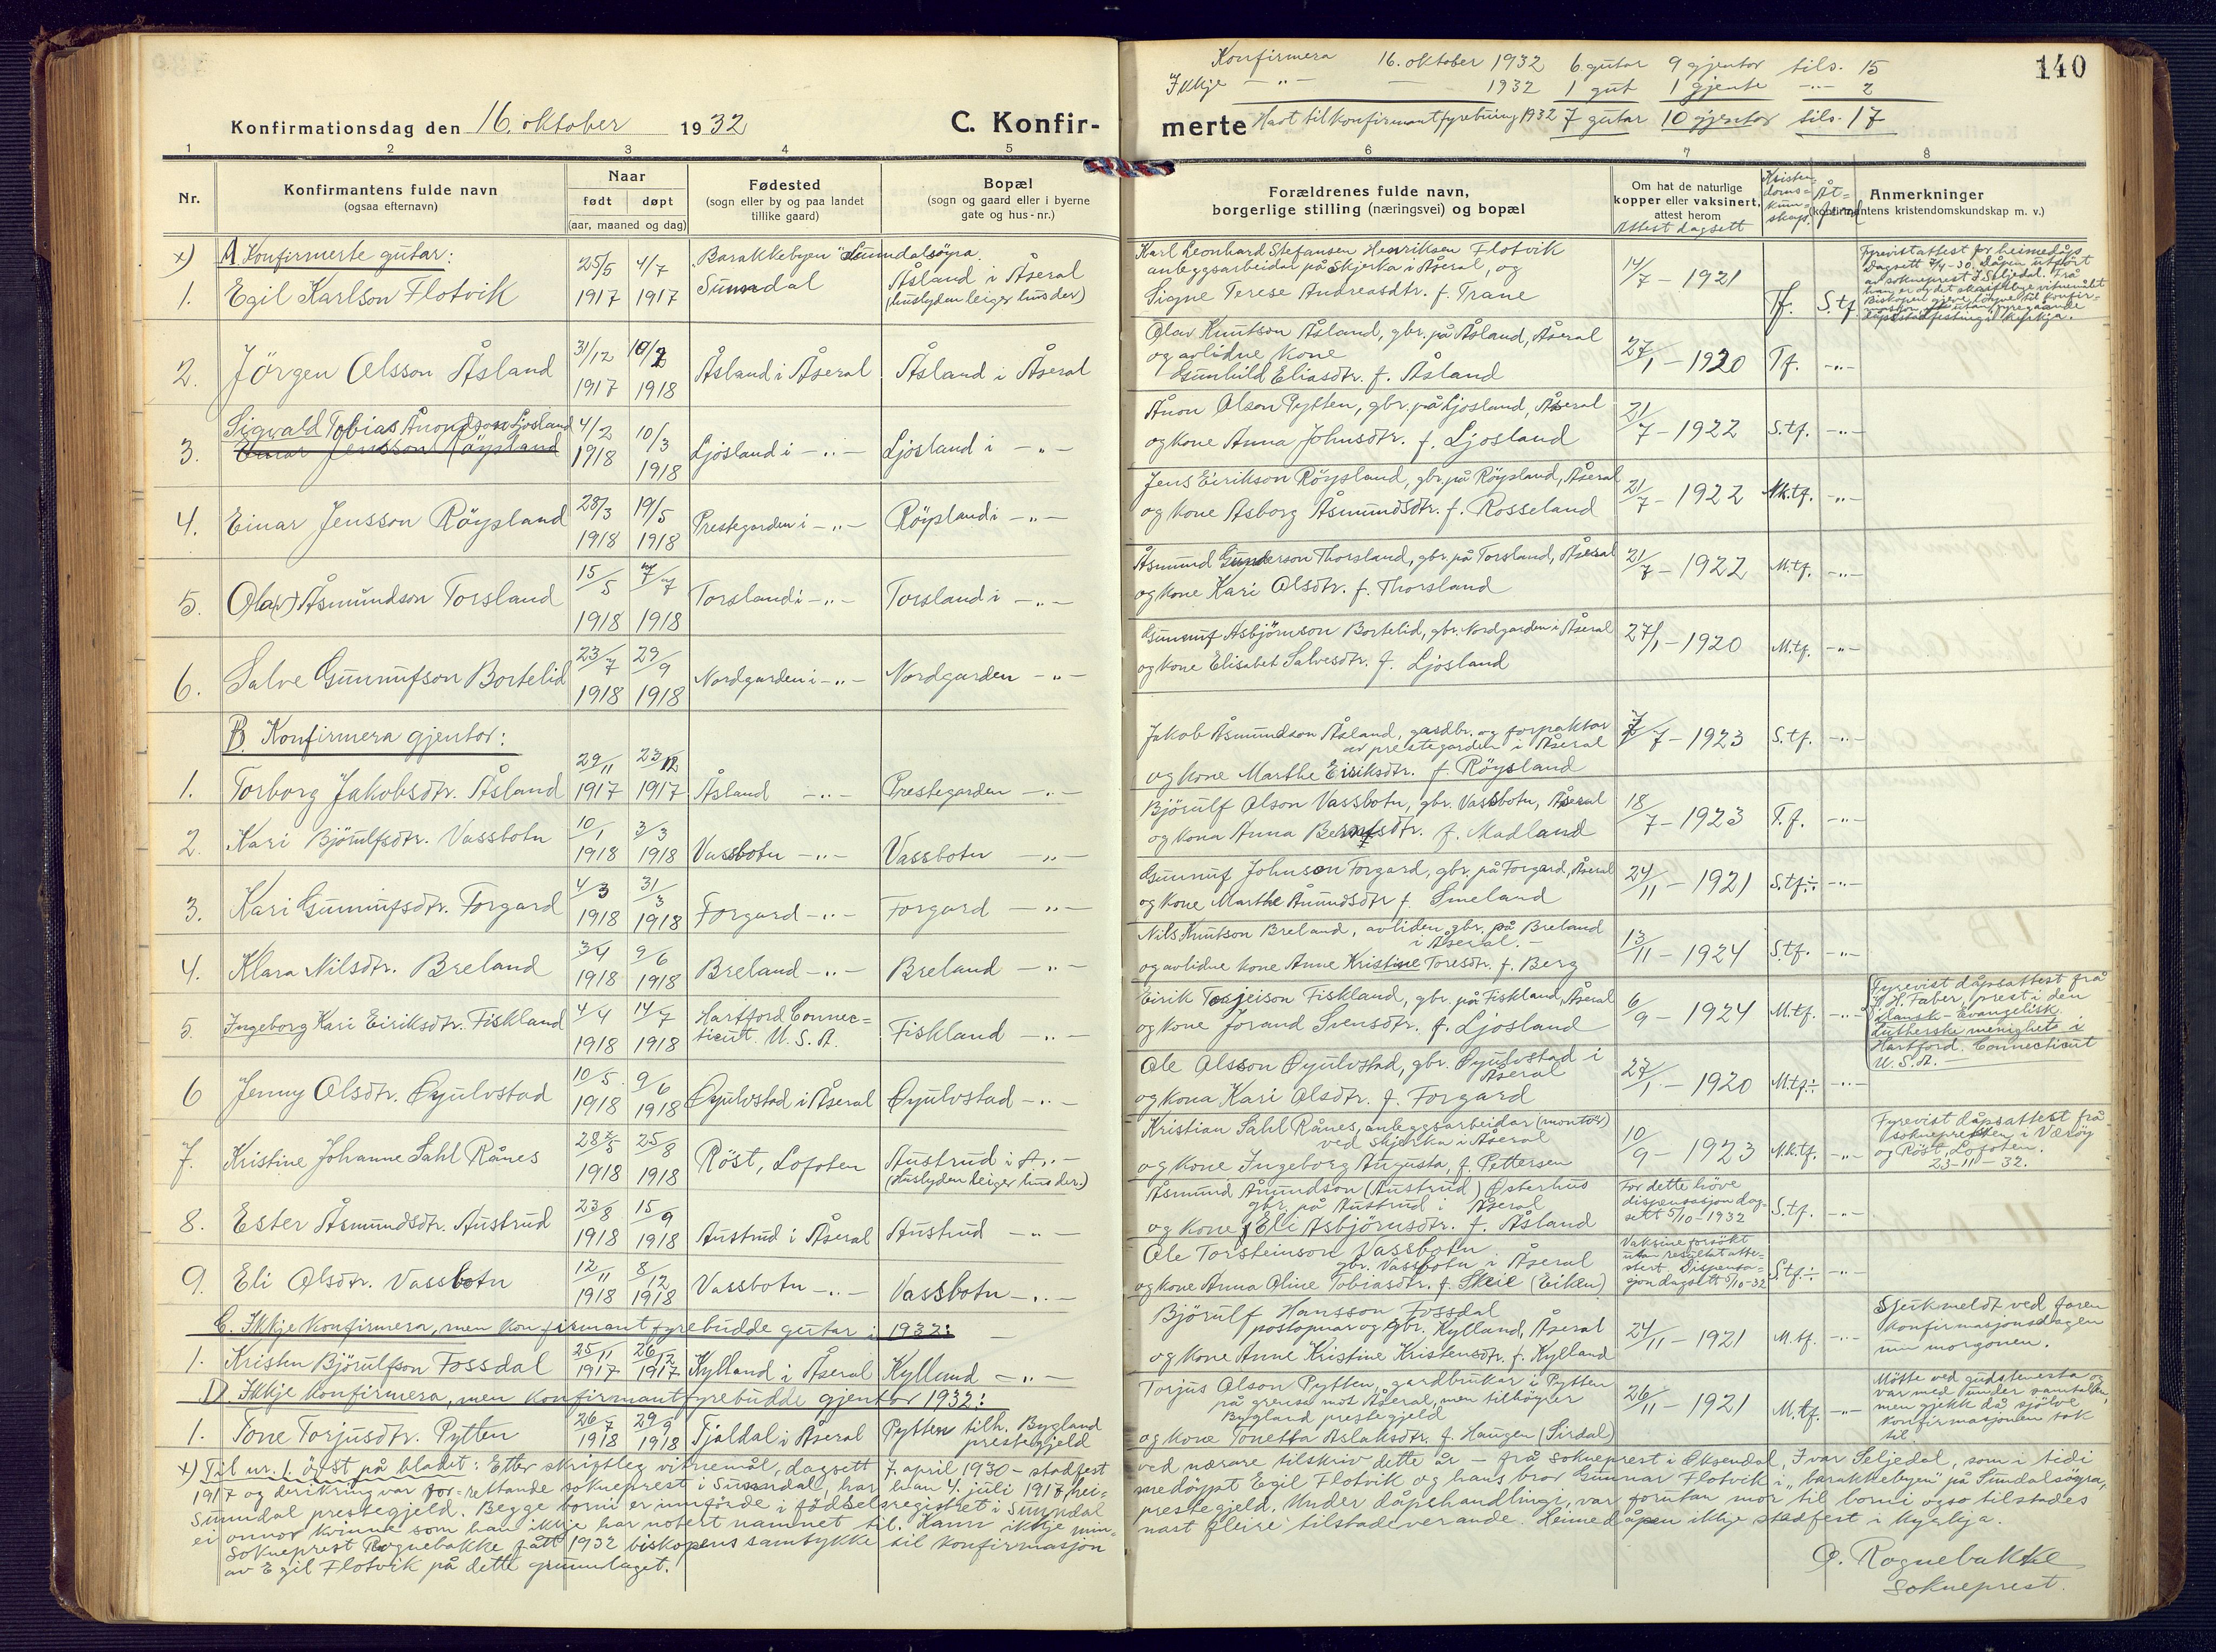 Konfirmationsdag den 16. oktober 1932
C. Konfir-
1 2 3 4 5
Nr.
Konfirmantens fulde navn
(ogsaa efternavn)
Naar
født døpt
(aar, maaned og dag)
Fødested
(sogn eller by og paa landet
tillike gaard)
Bopæl
(sogn og gaard eller i byerne
gate og hus-nr.)
x) A Konfirmerte gutar:
1. Egil Karlson Flotvik 25/5 1917 4/7 1917 "Barakkebyen" Sunndalsöyra Sunndal Åsland i Åseral
(huslyden leiger hus der)
2. Jörgen Olsson Åsland 31/12 1917 10/2 1918 Åsland i Åseral Åsland i Åseral
3. Sigvald Tobias Ånondson Ljosland 4/2 1918 10/3 1918 Ljosland i -„- Ljosland i -„-
Einar Jensson Röysland
4. Einar Jensson Röysland 28/3 1918 19/5 1918 Prestegarden i -„- Röysland i -„-
5. Olav Åsmundson Torsland 15/5 1918 7/7 1918 Torsland i -„- Torsland i -„-
6. Salve Gunnufson Bortelid 23/7 1918 29/9 1918 Nordgarden i -„- Nordgarden -„-
B. Konfirmera gjentor:
1. Torborg Jakobsdtr. Åsland 29/11 1917 23/12 1917 Åsland -„- Prestegarden -„-
2. Kari Björulfsdtr. Vassbotn 10/1 1918 3/3 1918 Vassbotn -„- Vassbotn -„-
3. Kari Gunnufsdtr. Forgard 4/3 1918 31/3 1918 Forgard -„- Forgard -„-
4. Klara Nilsdtr. Breland 3/4 1918 9/6 1918 Breland -„- Breland -„-
5. Ingeborg Kari Eiriksdtr. Fiskland 4/4 1918 14/7 1918 Hartford Connec=
ticut. U.S.A. Fiskland -„-
6 Jenny Olsdtr. Öyulvstad 10/5 1918 9/6 1918 Öyulvstad i Åseral Öyulvstad -„-
7. Kristine Johanne Sahl Rånes 28/5 1918 25/8 1918 Röst, Lofoten Austrud i Å. -„-
(Huslyden leiger hus der.)
8. Ester Åsmundsdtr. Austrud 23/8 1918 15/9 1918 Austrud i Åseral Austrud -„-
9. Eli Olsdtr. Vassbotn 12/11 1918 8/12 1918 Vassbotn -„- Vassbotn -„-
C. Ikkje konfirmera, men konfirmantfyrebudde gutar i 1932:
1. Kristen Björulfson Fossdal 25/11 1917 26/12 1917 Kylland i Åseral Kylland -„-
D. Ikkje konfirmera, men konfirmantfyrebudde gjentor 1932:
1. Tone Torjusdtr. Pytten 26/7 1918 29/9 1918 Tjaldal i Åseral Pytten tilh. Bygland
prestegjeld
x) Til nr. 1 övst på bladet: Etter skriftleg vitnemål, dagsett 7. april 1930 – stadfest
1917 og derikring var for-rettande sokneprest i Sunndal, har han 4. juli 1917, hei-
Sunndal prestegjeld. Begge borni er innförde i födselsregistret i Sunndal
ei onnor kvinne som han ikkje har notert namnet til. Kann ikkje min-
Sokneprest Rognebakke fått 1932 biskopens samtykke til konfirmasjon
av Egil Flotvik på dette grunnlaget.
Konfirmera 16. oktober 1932 6 gutar 9 gjentor tils. 15
Ikkje -„- 1932 1 gut 1 gjente -„- 2
140
merte
Havt til konfirmantfyrebuing 1932 7 gutar 10 gjentor tils. 17
6 7 8
Forældrenes fulde navn,
borgerlige stilling (næringsvei) og bopæl
Om hat de naturlige
kopper eller vaksinert,
attest herom
Attest dagsett
Kristen-
doms=
kun-
skap.
Åt-
ferd
Anmerkninger
(konfirmantens kristendomskundskap m. v.)
Karl Leonhard Stefansen Henriksen Flotvik
anleggsarbeidar på Skjerka i Åseral, og
Signe Terese Andreasdtr. f. Trane
14/7 - 1921 Tf. S.tf.
Fyrevist attest for heimedåp
Dagsett 7/4-30. Dåpen utfört
av sokneprest I. Seljedal. Frå
Olav Knutson Åsland, gbr. på Åsland, Åseral
og avlidne kone
Gunhild Eliasdtr. f. Åsland
27/1 - 1920 Tf. -„-
Ånon Olson Pytten, gbr. på Ljosland, Åseral
og kone Anna Johnsdtr. f. Ljosland
21/7 - 1922 S.tf. -„-
Jens Eirikson Röysland, gbr. på Röysland, Åseral
og kone Asborg Åsmundsdtr. f. Rosseland
21/7 - 1922 Mk.tf. -„-
Åsmund Gunderson Thorsland, gbr. på Torsland, Åseral
og kone Kari Olsdtr. f. Thorsland
21/7 - 1922 M.tf. -„-
Gunnuf Asbjörnson Bortelid, gbr. Nordgarden i Åseral
og kone Elisabet Salvesdtr. f. Ljosland
27/1 - 1920 M.tf. -„-
Jakob Åsmundson Åsland, gardbr. og forpaktar
av prestegarden i Åseral
og kone Marthe Eiriksdtr. f. Röysland
7/7 - 1923 S.tf. -„-
Björulf Olson Vassbotn, gbr. Vassbotn, Åseral
og kona Anna Berntsdtr. f. Madland
18/7 - 1923 T.f. -„-
Gunnuf Johnson Forgard, gbr. på Forgard, Åseral
og kone Marthe Ånundsdtr f. Smeland
24/11 - 1921 S.tf.÷ -„-
Nils Knutson Breland, avliden gbr. på Breland
i Åseral. -
og avlidne kone Anne Kristine Toresdtr. f. Berg
13/11 - 1924 S.tf. -„-
Eirik Torjeison Fiskland, gbr. på Fiskland, Åseral
og kone Jorand Svensdtr. f. Ljosland
6/9 - 1924 M.tf. -„-
Fyrevist dåpsattest frå
H. Faber, prest i den
dansk-Evangelisk
Lutherske menighet i
Hartford. Connecticut
U.S.A.
Ole Olsson Öyulvstad, gbr. Öyulvstad i
Åseral
og kona Kari Olsdtr. f. Forgard
27/1 - 1920 M.tf.÷ -„-
Kristian Sahl Rånes, anleggsarbeidar (montör)
ved Skjerka i Åseral
og kone Ingeborg Augusta, f. Pettersen
10/9 - 1923 N.k.tf. -„-
Fyrevist dåpsattest frå
soknepresten i Væröy
og Röst, Lofoten.
23-11-32.
Åsmund Ånundson (Austrud) Österhus
gbr. på Austrud i Åseral
og kone Eli Asbjörnsdtr. f. Åsland
For dette höve
dispensasjon dag-
sett 5/10-1932 S.tf. -„-
Ole Torsteinson Vassbotn
gbr. Vassbotn i Åseral
og kone Anna Oline Tobiasdtr. f. Skeie (Eiken)
Vaksine forsökt
utan resultat atte-
stert. Dispensa-
sjon dagsett 5/10-32 S.tf.÷ -„-
Björulf Hansson Fossdal
postopnar og gbr. Kylland, Åseral
og kone Anne Kristine Kristensdtr. f. Kylland
24/11 - 1921 M.tf. -„-
Sjukmeldt ved faren
konfirmasjonsdagen
um morgonen.
Torjus Olson Pytten, gardbrukar i Pytten
på grensa mot Åseral, men tilhöyrer
Bygland prestegjeld
og kone Tonetta Aslaksdtr. f. Haugen (Sirdal)
26/11 - 1921 M.tf. -„-
Mötte ved gudstenesta og
var med under samtalen,
men gjekk då sjölve
konfirmasjonen tok
til.
ved nærare tilskriv dette år – frå sokneprest i Öksendal, Ivar Seljedal, som i tidi
medöypt Egil Flotvik og hans bror Gunnar Flotvik i „barakkebyen" på Sunndalsöyra,
prestegjeld. Under dåpshandlingi, var forutan mor til borni ogso tilstades
nast fleire tilstadeverande. Heimedåpen ikkje stadfest i kyrkja.
O. Rognebakke
sokneprest.